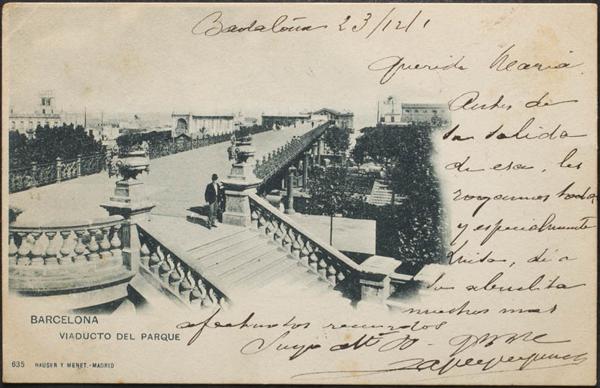 Badalona 23/12/1
Querida Maria
Antes de
la salida
de esa, les
rogamos todos
y especialmente
Luisa, de a
la abuelita
muchos mas
afectuosos recuerdos
Suyo
BARCELONA
VIADUCTO DEL PARQUE
635 HAUSER Y MENET.-MADRID